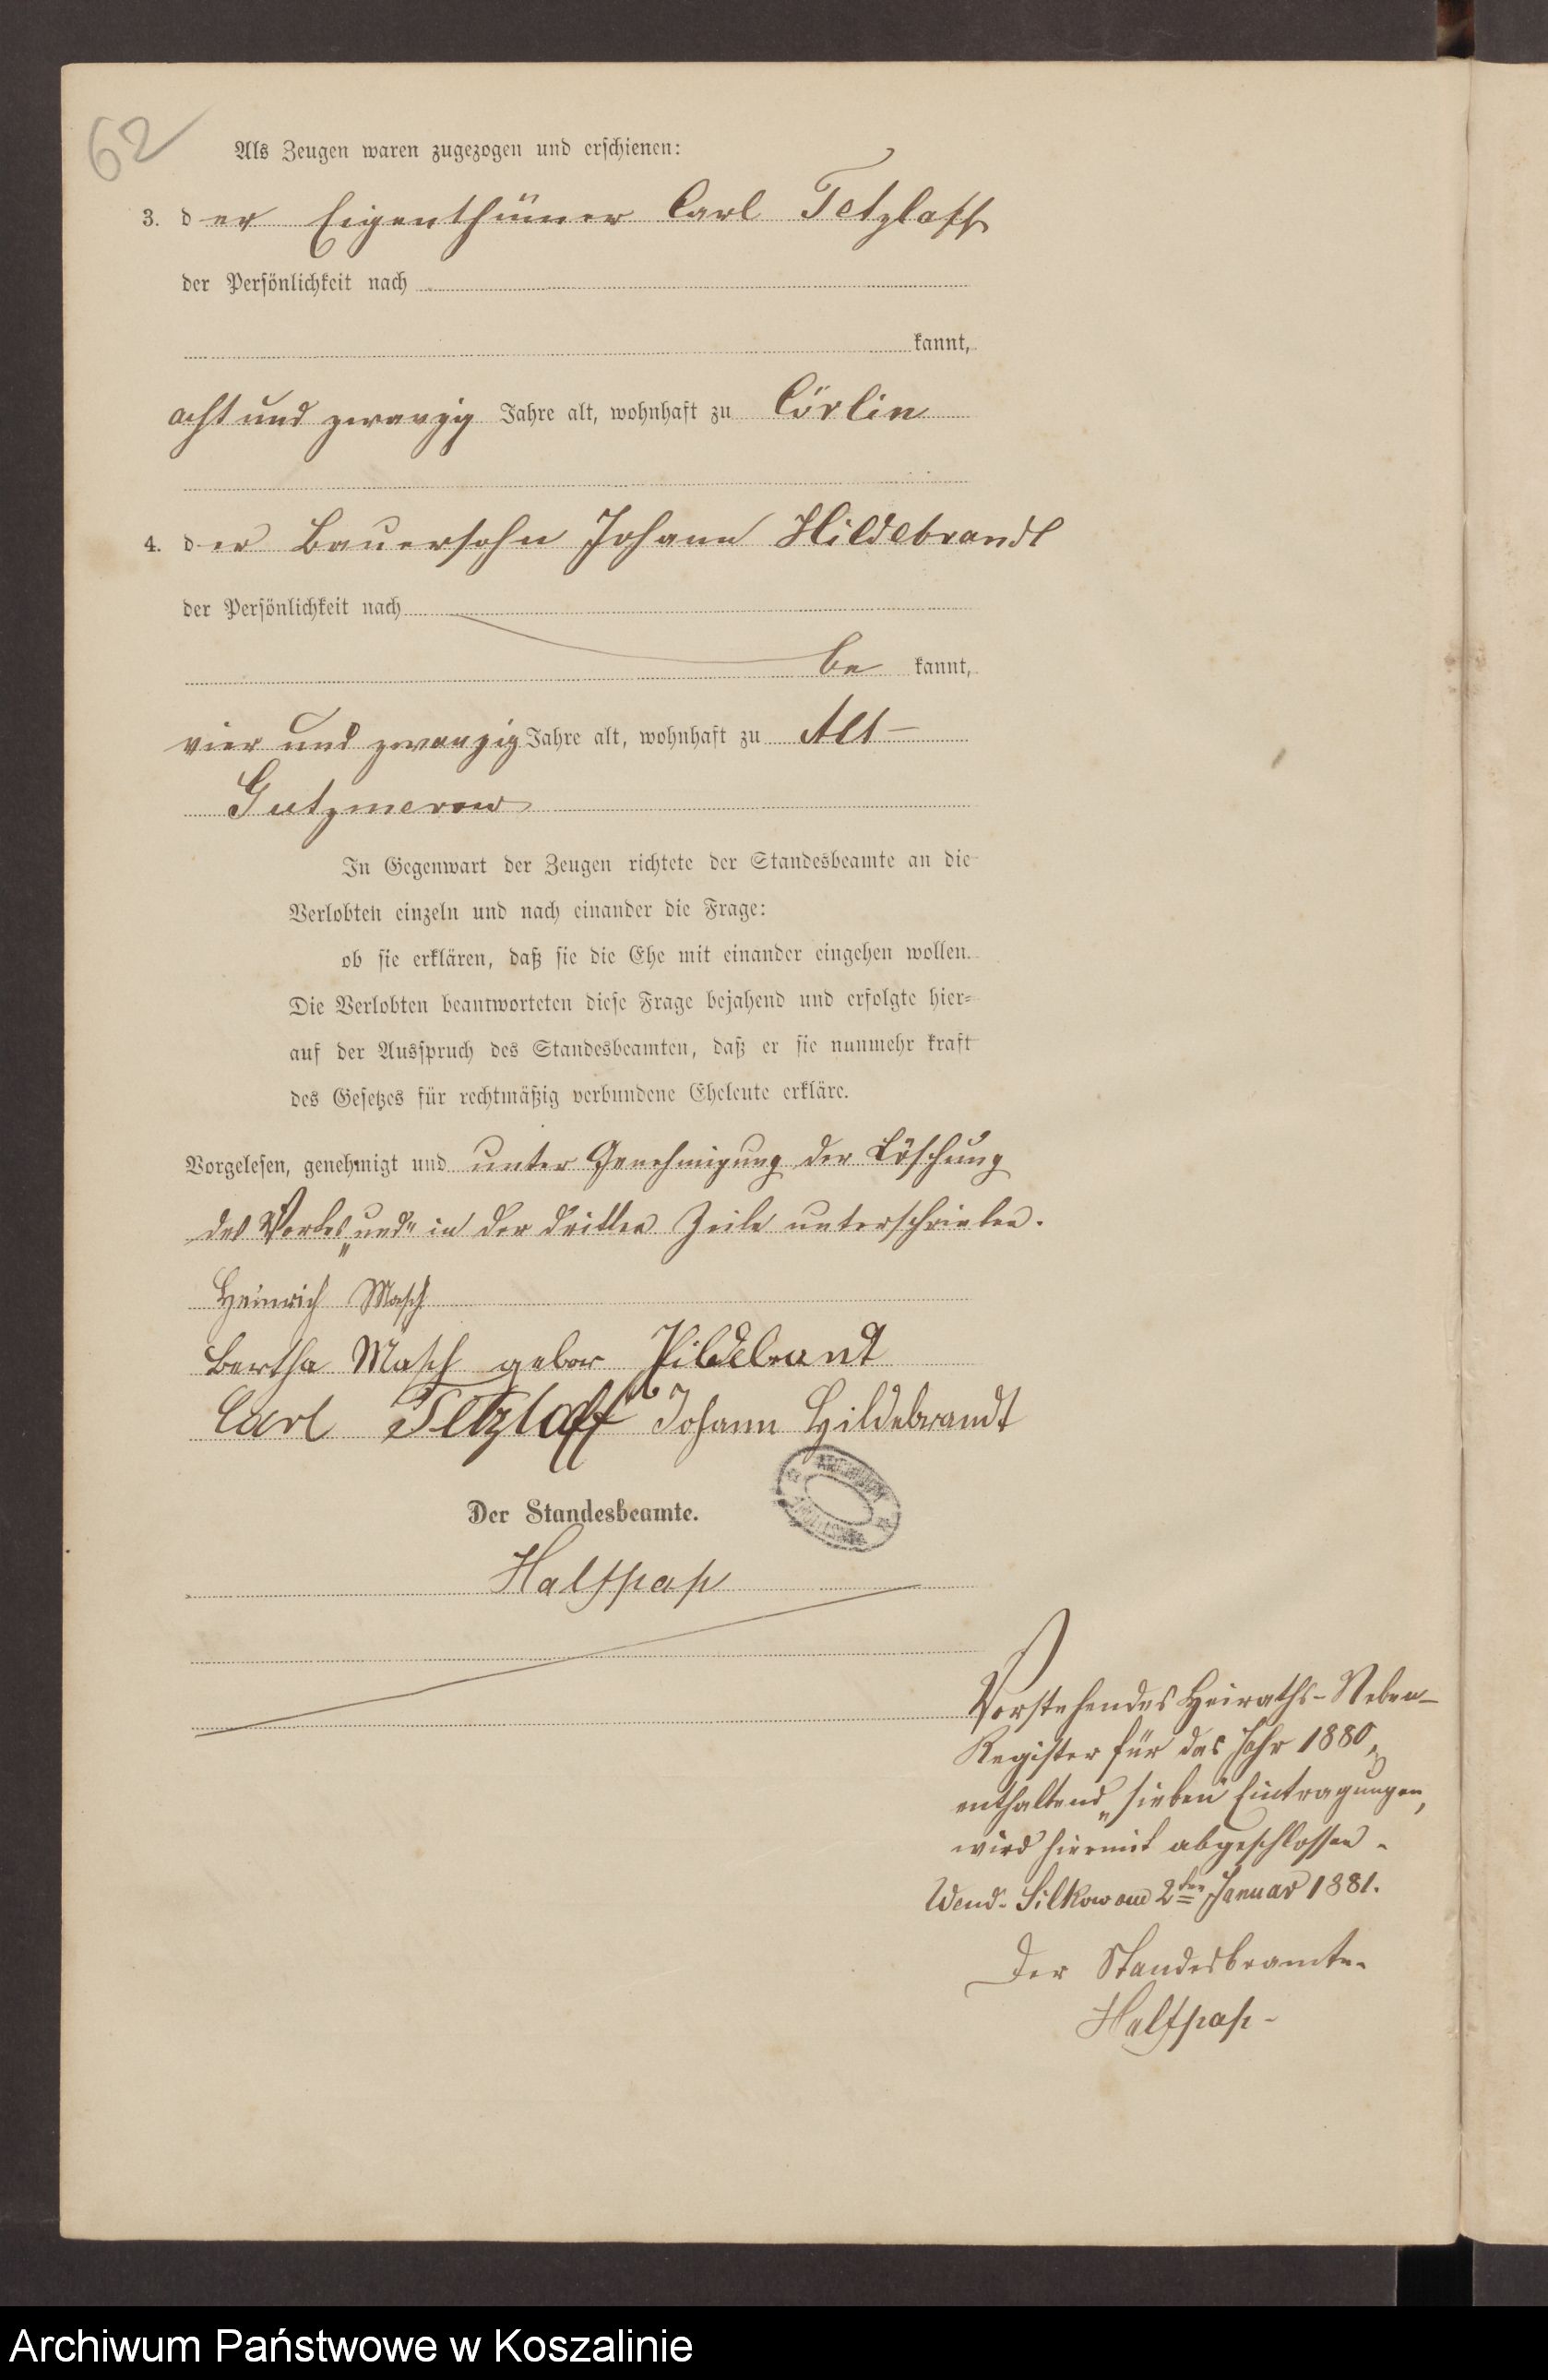 62
Als Zeugen waren zugezogen und erschienen:
3. der Eigenthümer Carl Tetzlaff
der Persönlichkeit nach
kannt,
acht und zwanzig Jahre alt, wohnhaft zu Cörlin
4. der Bauersohn Johann Hildebrandt
der Persönlichkeit nach
be kannt,
vier und zwanzig Jahre alt, wohnhaft zu Alt-
Gutzmerow
In Gegenwart der Zeugen richtete der Standesbeamte an die
Verlobten einzeln und nach einander die Frage:
ob sie erklären, daß sie die Ehe mit einander eingehen wollen.
Die Verlobten beantworteten diese Frage bejahend und erfolgte hier-
auf der Ausspruch des Standesbeamten, daß er sie nunmehr kraft
des Gesetzes für rechtmäßig verbundene Eheleute erkläre.
Vorgelesen, genehmigt und unter Genehmigung der Löschung
des Wortes „und" in der dritten Zeile unterschrieben.
Heinrich Masch
Bertha Masch gebor Hildebrant
Carl Tetzlaff Johann Hildebrandt
Der Standesbeamte.
Halfpap
Vorstehendes Heiraths-Neben-
Register für das Jahr 1880,
enthaltend „sieben" Eintragungen,
wird hiermit abgeschlossen.
Wend. Silkow am 2ten Januar 1881.
Der Standesbeamte.
Halfpap
Archiwum Państwowe w Koszalinie